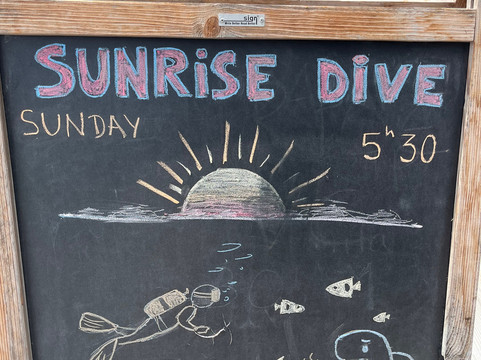 sign
SUNRiSE DiVE
SUNDAY
5h30